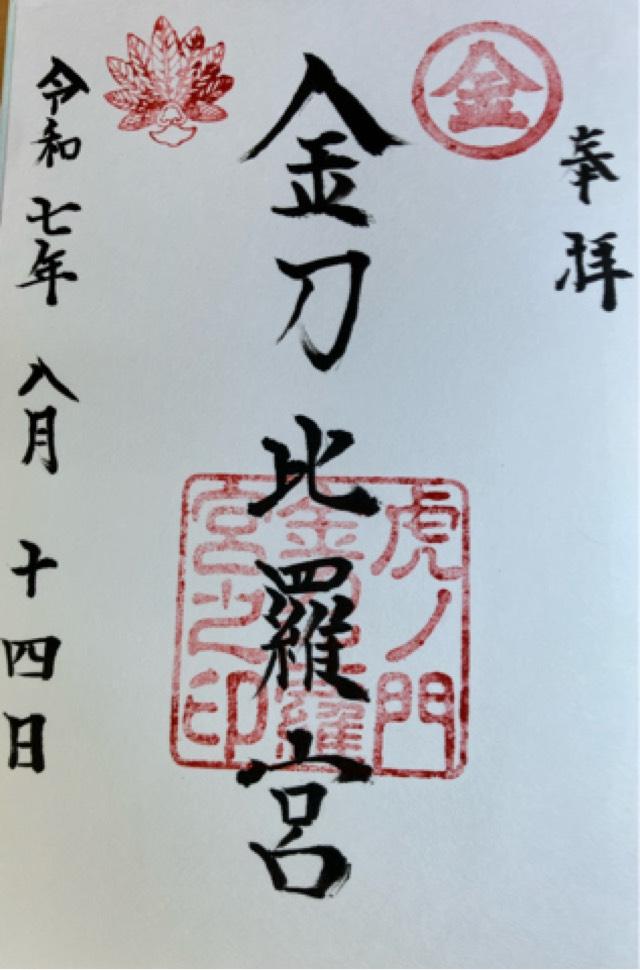 奉拝
金
金刀比羅宮
虎ノ門
金刀比羅
宮之印
令和七年八月十四日